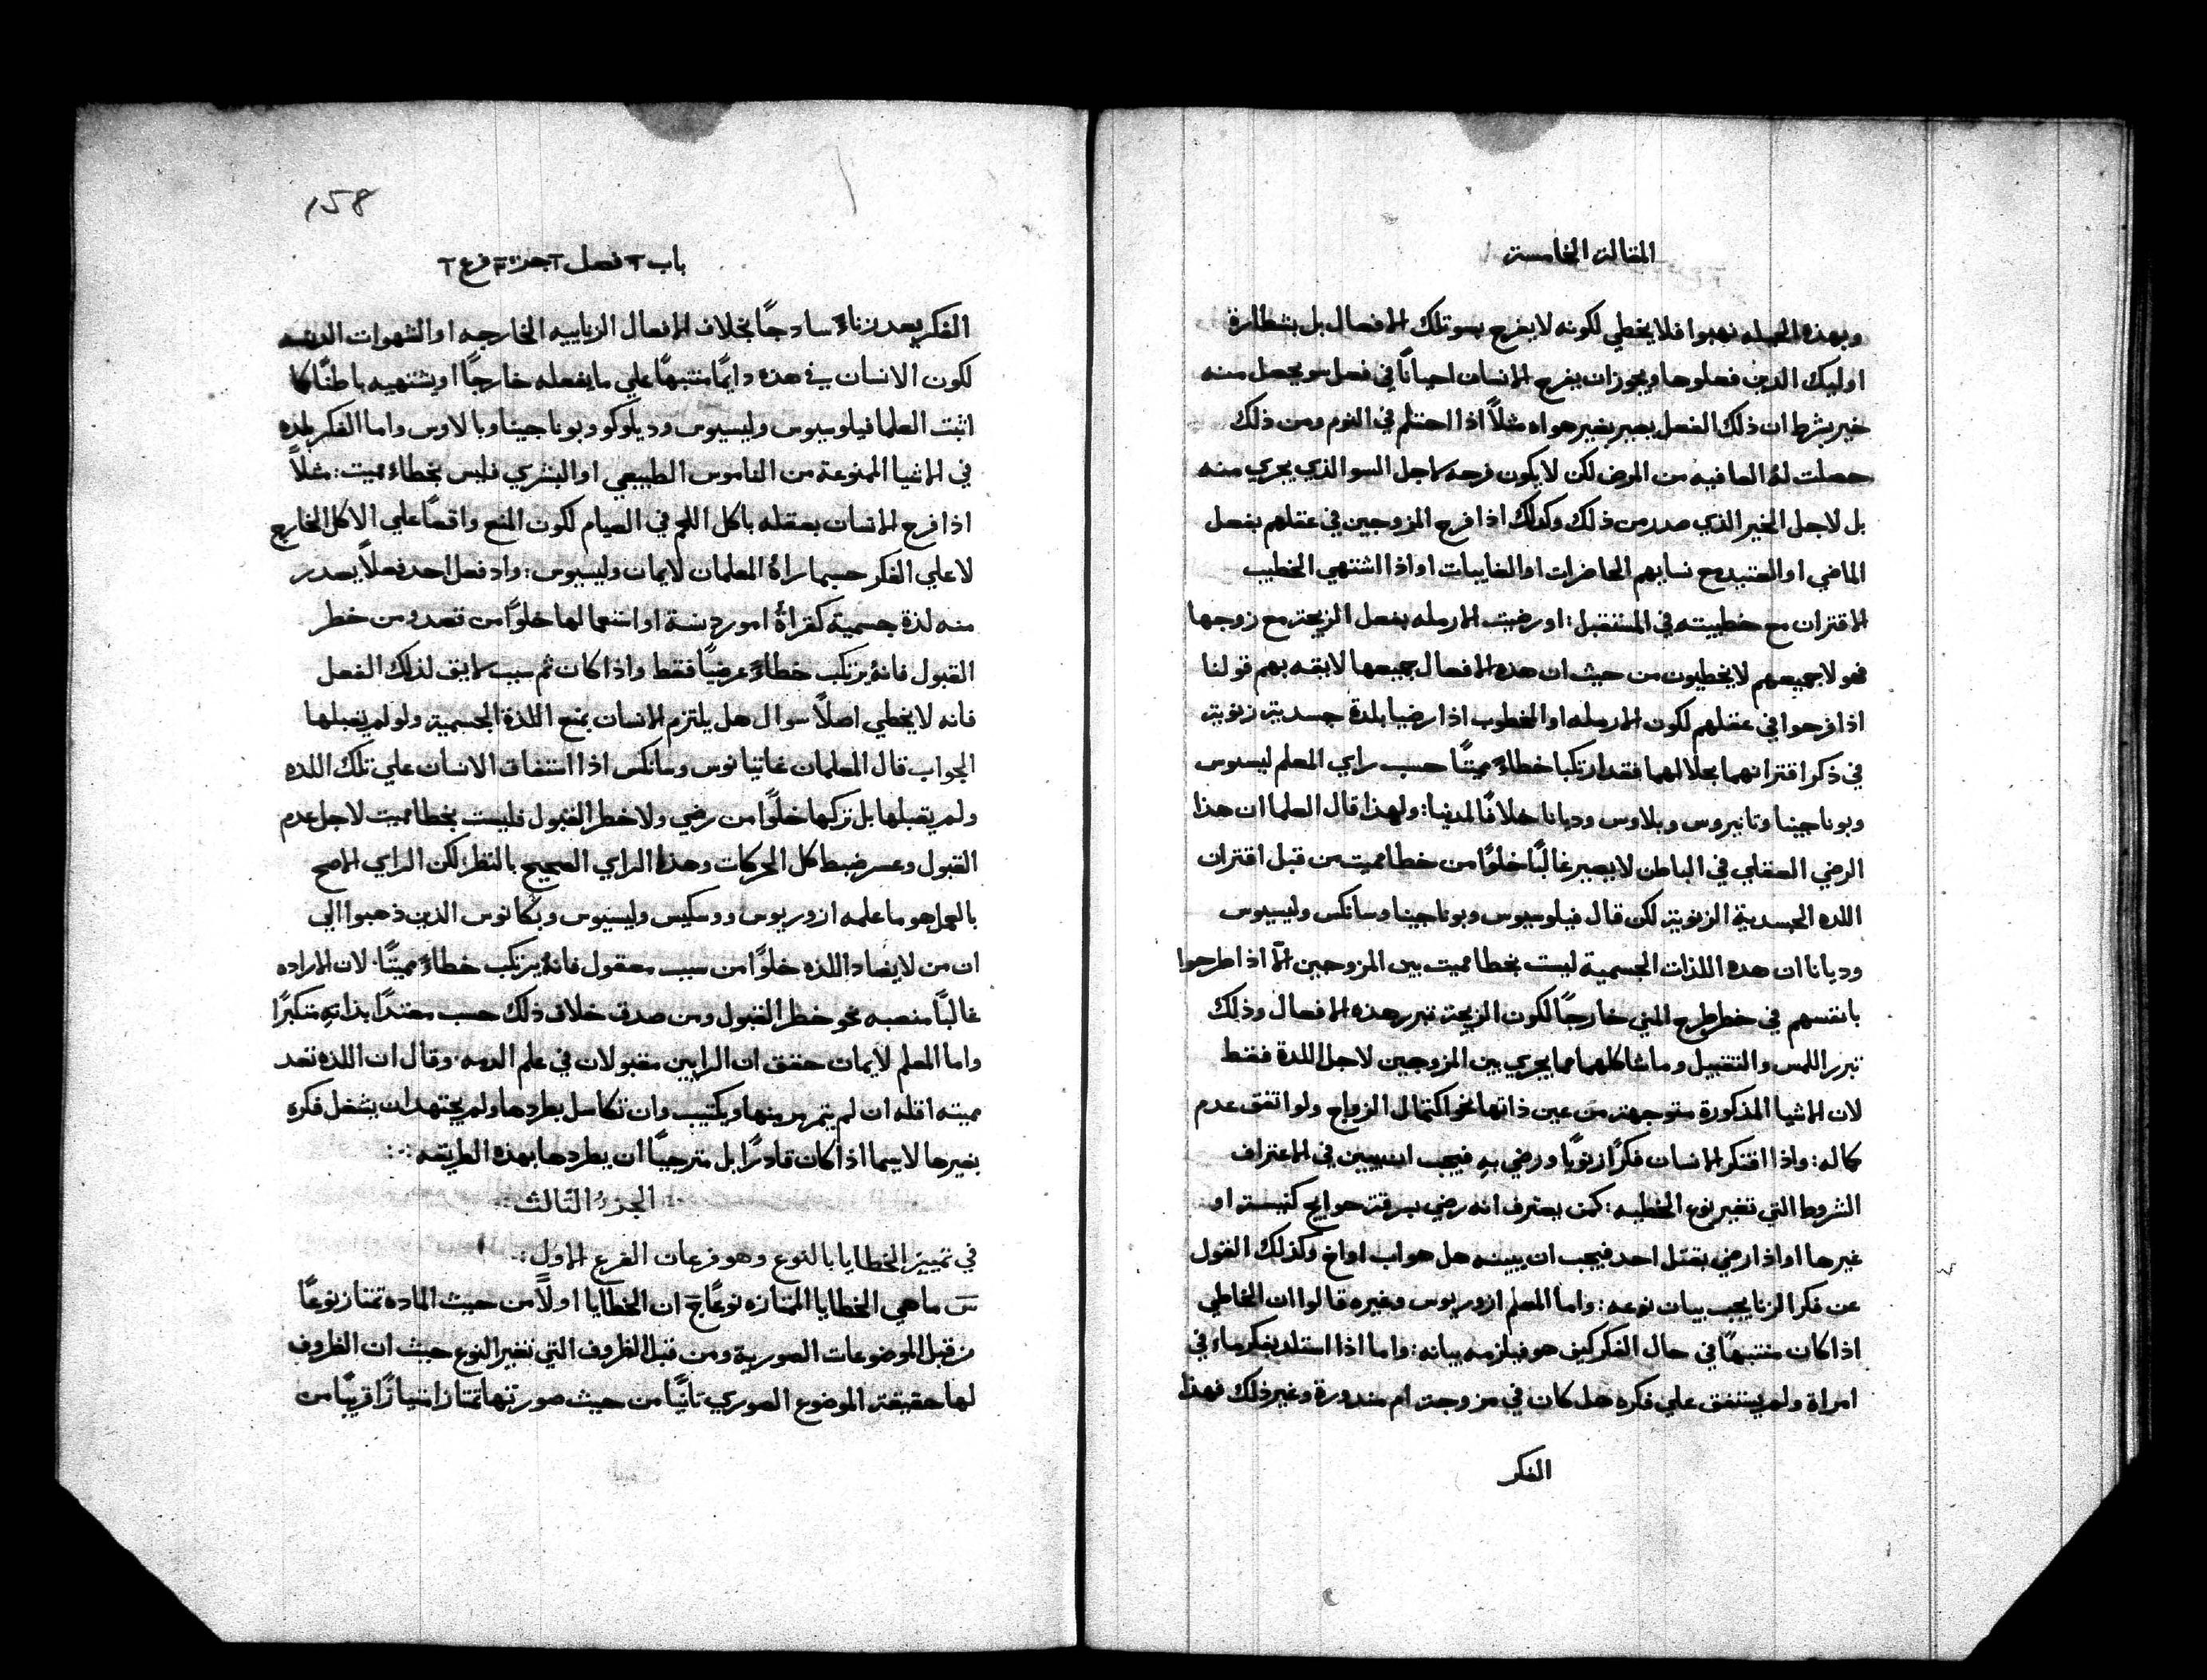 المقالة الخامسة
وبهذه الحيله نهبوا فلا يخطي لكونه لا يفرح بسو تلك الافعال بل بشطارة
اوليك الدين فعلوها ويجوز ان يفرح الانسان احيانًا في فعل سو يحصل منه
خير بشرط ان ذلك الفعل يصير بغير هواه مثلًا اذا احتلم في النوم ومن ذلك
حصلت لهُ العافيه من المرض لكن لا يكون فرحه لاجل السو الذي يجري منه
بل لاجل الخير الذي صدر من ذلك وكذلك اذا فرح المزوجين في عقلهم بفعل
الماضي او العتيد مع نسايهم الحاضرات او الغايبات او اذا اشتهي الخطيب
الاقتران مع خطيبته في المستقبل: او رضيت الارمله بفعل الزيجة مع زوجها
فهولا جميعهم لا يخطيون من حيث ان هده الافعال جميعها لايقه بهم قولنا
اذا فرحوا في عقلهم لكون الارمله او المخطوب اذا رضيا بلدة جسدية زنوية
في ذكر اقترانهما بحلالهما فقد ارتكبا خطاءً مميتًا حسب راي المعلم ليسيوس
وبوناجينا وتانيروس وبلاوس وديانا خلافًا لمدينا: ولهذا قال العلما ان هذا
الرضي العقلي في الباطن لا يصير غالبًا خلوًا من خطا مميت من قبل اقتران
اللده الجسدية الزنوية لكن قال فيلوسيوس وبوناجينا وسانكس وليسيوس
وديانا ان هده اللذات الجسمية ليست بخطا مميت بين المزوجين الّا اذا طرحوا
بانفسهم في خطر طرح المني خارجًا لكون الزيجة تبرر هذه الافعال وذلك
تبرر اللمس والتقبيل وما شاكلهما مما يجري بين المزوجين لاجل اللدة فقط
لان الاشيا المذكورة متوجهة من عين ذاتها نحو اكتمال الزواج ولو اتفق عدم
كماله: واذا افتكر الانسان فكرًا زنويًا ورضي به فيجب ان يبين في الاعتراف
الشروط التي تغير نوع الخطيه: كمن يعترف انه رضي بسرقة حوايج كنيسة او
غيرها او اذا رضي بقتل احد فيجب ان يبينه هل هو اب او اخ وكذلك القول
عن فكر الزنا يجب بيان نوعه: واما المعلم ازوريوس وغيره قالوا ان الخاطي
اذا كان منتبهًا في حال الفكر كيف هو فيلزمه بيانه: واما اذا استلد بفكر ماء في
امراة ولم يستفق علي فكره هل كان في مزوجة ام مندورة وغير ذلك فهذا
الفكر
158
باب ٢ فصل ٢ جزء ٢ فرع ٢
الفكر يعد زناءً سادجًا بخلاف الافعال الزناييه الخارجه او الشهوات الدنسه
لكون الانسان في هده دايمًا منتبهًا علي ما يفعله خارجًا او يشتهيه باطنًا كما
اثبت العلما فيلوسيوس وليسيوس وديلوكو وبوناجينا وبالاوس واما الفكر بلده
في الاشيا الممنوعة من الناموس الطبيعي او البشري فليس بخطاء مميت: مثلًا
اذا فرح الانسان بعقله باكل اللحم في الصيام لكون المنع واقعًا علي الاكل الخارج
لا علي الفكر حسبما راهُ المعلمان لايمان وليسيوس: واذ فعل احد فعلًا يصدر
منه لذة جسمية كقراةُ امور دنسة او استعمالها خلوًا من قصد ومن خطر
القبول فانهُ يرتكب خطاءً عرضيًا فقط واذا كان ثم سبب لايق لذلك الفعل
فانه لا يخطي اصلًا سوال هل يلتزم الانسان بمنع اللذة الجسمية ولو لم يقبلها
الجواب قال المعلمان غاتيانوس وسانكس اذا استفاق الانسان علي تلك اللده
ولم يقبلها بل تركها خلوًا من رضي ولا خطر القبول فليست بخطا مميت لاجل عدم
القبول وعسر ضبط كل الحركات وهذا الراي الصحيح بالنظر: لكن الراي الاصح
بالعمل هو ما علمه ازوريوس ودسكيس وليسيوس وبكانوس الذين ذهبوا الي
ان من لا يضاد اللذه خلوًا من سبب معقول فانهُ يرتكب خطاءً مميتًا. لان الاراده
غالبًا منصبه نحو خطر القبول ومن صدق خلاف ذلك حسب معتدًا بذاته متكبرًا
واما المعلم لايمان حقق ان الرايين مقبولان في علم الدمه. وقال ان اللذه تعد
مميته اقله ان لم يتمرمر منها ويكتيب وان تكاسل بطردها ولم يجتهد ان يشغل فكره
بغيرها لاسيما اذا كان قادرًا بل مترجيًا ان يطردها بهذه الطريقه:
الجزءُ الثالث
في تمييز الخطايا بالنوع وهو فرعان الفرع الاول:
س ما هي الخطايا الممتازه نوعًا ج ان الخطايا اولًا من حيث الماده تمتاز نوعًا
من قبل الموضوعات الصورية ومن قبل الظروف التي تغير النوع حيث ان الظروف
لها حقيقة الموضوع الصوري ثانيًا من حيث صورتها تمتاز امتيازًا قريبًا من